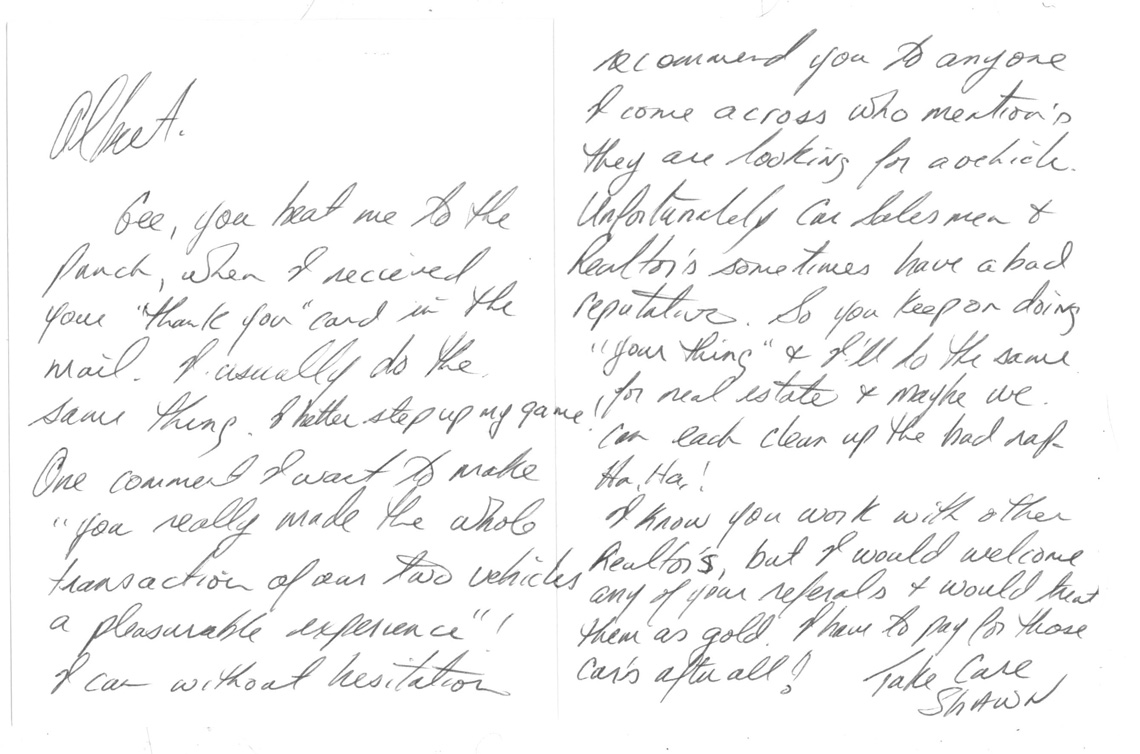 Albert.
Gee, you beat me to the
punch, when I recieved
your "thank you" card in the
mail. I usually do the
same thing. I better step up my game!
One comment I want to make
"you really made the whole
transaction of our two vehicles
a pleasurable experience"!
I can without hesitation
recommend you to anyone
I come across who mention's
they are looking for a vehicle.
Unfortunately Car Salesmen &
Realtor's sometimes have a bad
reputation. So you keep on doing
"your thing" & I'll do the same
for real estate & maybe we
can each clean up the bad rap
Ha, Ha,!
I know you work with other
Realtor's, but I would welcome
any of your referals & would treat
them as gold. I have to pay for those
car's after all!
Take Care
SHAWN